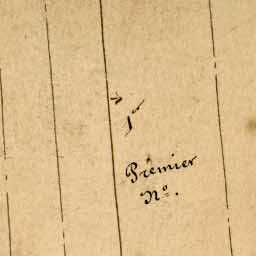 1er
Premier
No.